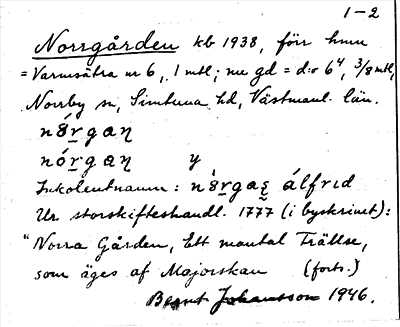 1-2
Norrgården kb 1938, förr hmn
= Varmsätra nr 6, 1 mtl; nu gd = d:o 6⁴, 3/8 mtl,
Norrby sn, Simtuna hd, Västmanl. län.
nórgaɳ
nórgaɳ y
Inkolentnamn: nórgas álfrɪd
Ur storskifteshandl. 1777 (i byskrinet):
"Norra Gården, Ett mantal Frällse,
som äges af Majorskan (forts.)
Bernt Johansson 1946.